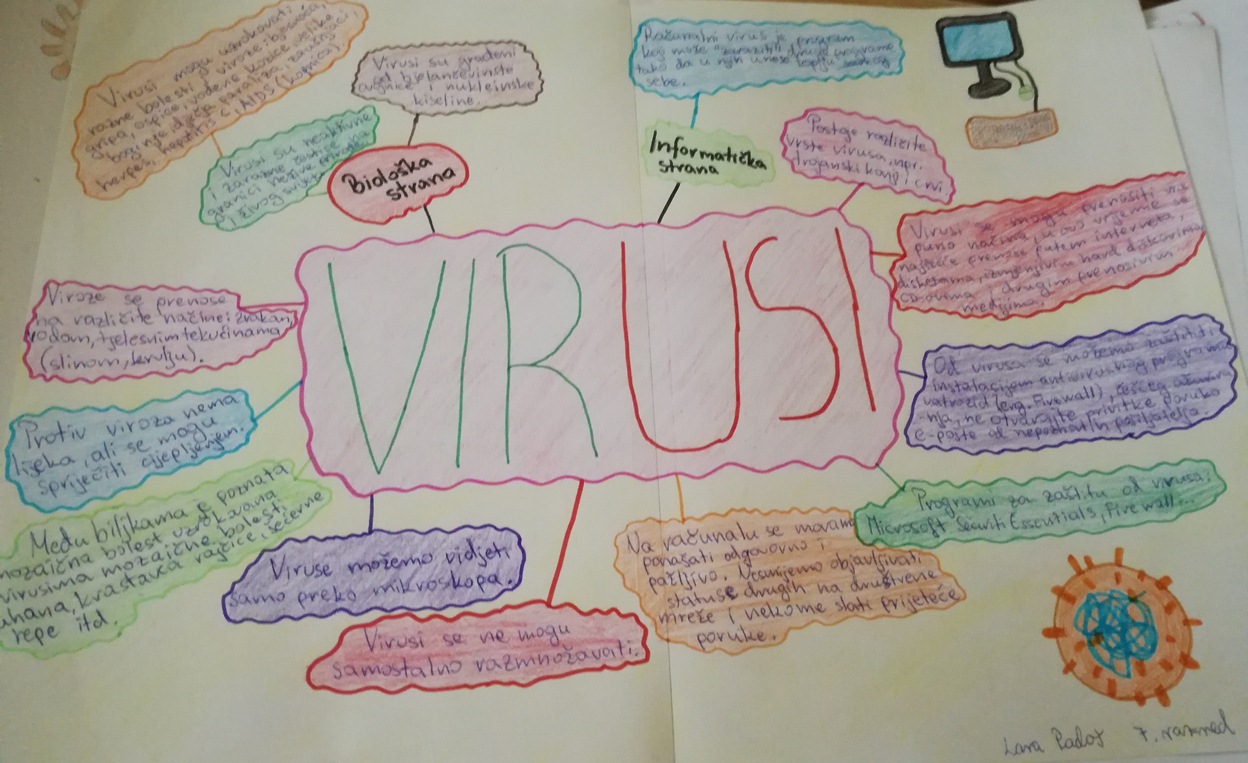 VIRUSI
Biološka
strana
Virusi su građeni
od bjelančevinste
ovojnice i nukleinske
kiseline.
Virusi mogu uzrokovati
razne bolesti - viroze: bjesnoća,
gripa, ospice, vodene kozice, velike
boginje, dječja paraliza, zaušnjaci,
herpes, hepatitis C, AIDS (kopnica)
Virusi su neaktivne
zarazne čestice na
granici nežive prirode
i živog svijeta
Viroze se prenose
na različite načine: zrakom,
vodom, tjelesnim tekućinama
(slinom, krvlju).
Protiv viroza nema
lijeka, ali se mogu
spriječiti cijepljenjem.
Među biljkama je poznata
mozaična bolest uzrokovana
virusima mozaične bolesti
duhana, krastavca, rajčice, šećerne
repe itd.
Viruse možemo vidjeti
samo preko mikroskopa.
Virusi se ne mogu
samostalno razmnožavati.
Informatička
strana
Računalni virus je program
koji može "zaraziti" druge programe
tako da u njih unese kopiju samog
sebe.
Postoje različite
vrste virusa, npr.
trojanski konj, crvi
Virusi se mogu prenositi na
puno načina, u ovo vrijeme se
najčešće prenose putem interneta,
disketama, izmjenjivim hard diskovima
CD-ovima drugim prenosivim
medijima.
Od virusa se možemo zaštititi
instalacijom antivirusnog programa
vatrozid (eng. Firewall), čestog
nja, ne otvarajte privitke poruka
e-pošte od nepoznatih pošiljatelja.
Programi za zaštitu od virusa:
Microsoft Securiti Essentials, Firewall...
Na računalu se moramo
ponašati odgovorno i
pažljivo. Nesmijemo objavljivati
statuse drugih na društvene
mreže i nekome slati prijeteće
poruke.
Lana 7. razred